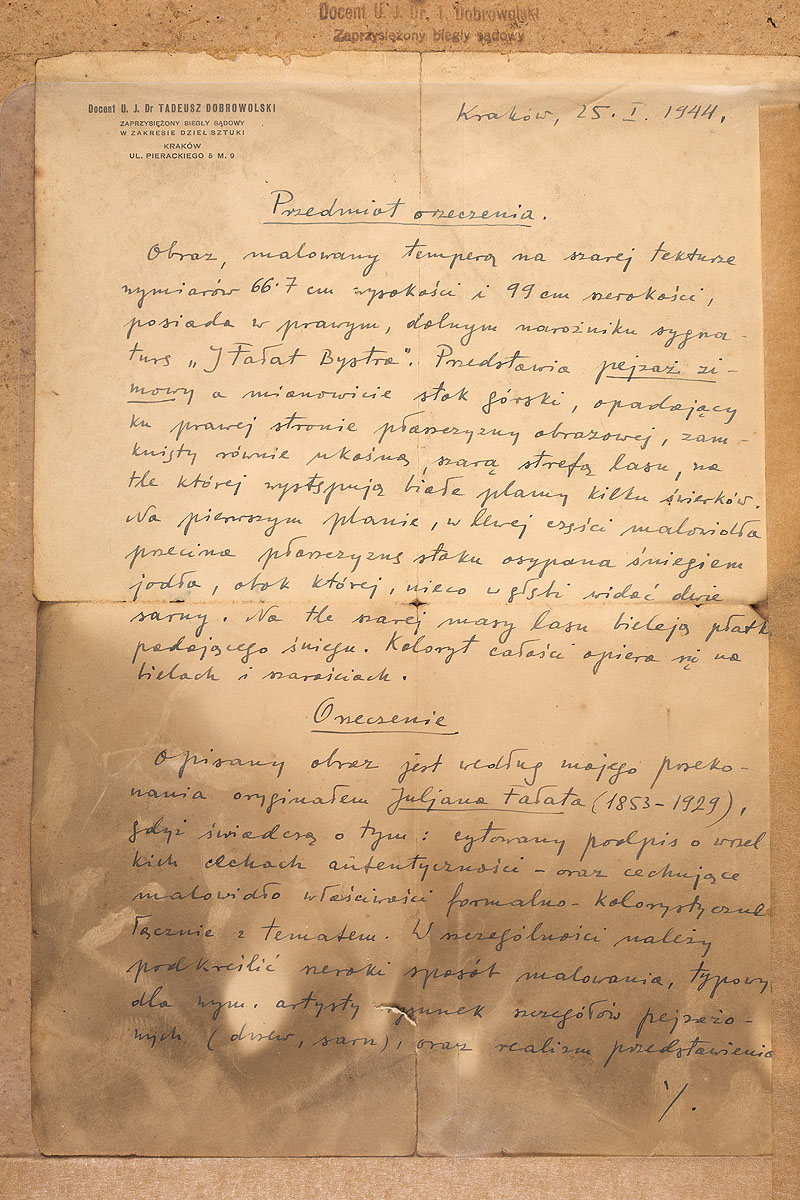 Docent U. J. Dr. T. Dobrowolski
Zaprzysiężony biegły sądowy
Docent U. J. Dr TADEUSZ DOBROWOLSKI
ZAPRZYSIĘŻONY BIEGŁY SĄDOWY
W ZAKRESIE DZIEŁ SZTUKI
KRAKÓW
UL. PIERACKIEGO 5 M. 9
Kraków, 25. I. 1944.
Przedmiot orzeczenia.
Obraz, malowany temperą na szarej tekturze
wymiarów 66·7 cm wysokości i 99 cm szerokości,
posiada w prawym, dolnym narożniku sygna-
turę „J Fałat Bystra". Przedstawia pejzaż zi-
mowy a mianowicie stok górski, opadający
ku prawej stronie płaszczyzny obrazowej, zam-
knięty równie ukośną, szarą strefą lasu, na
tle której występują białe plamy kilku świerków.
Na pierwszym planie, w lewej części malowidła
przecina płaszczyznę stoku osypana śniegiem
jodła, obok której, nieco w głębi widać dwie
sarny. Na tle szarej masy lasu bieleją płatk
padającego śniegu. Koloryt całości opiera się na
bielach i szarościach.
Orzeczenie
Opisany obraz jest według mojego przeko-
nania oryginałem Juljana Fałata (1853-1929),
gdyż świadczą o tym: cytowany podpis o wszel
kich cechach autentyczności - oraz cechujące
malowidło właściwości formalno-kolorystyczne
łącznie z tematem. W szczególności należy
podkreślić szeroki sposób malowania, typowy
dla wym. artysty rysunek szczegółów pejzażo-
wych (drzew, sarn), oraz realizm przedstawienia
./.